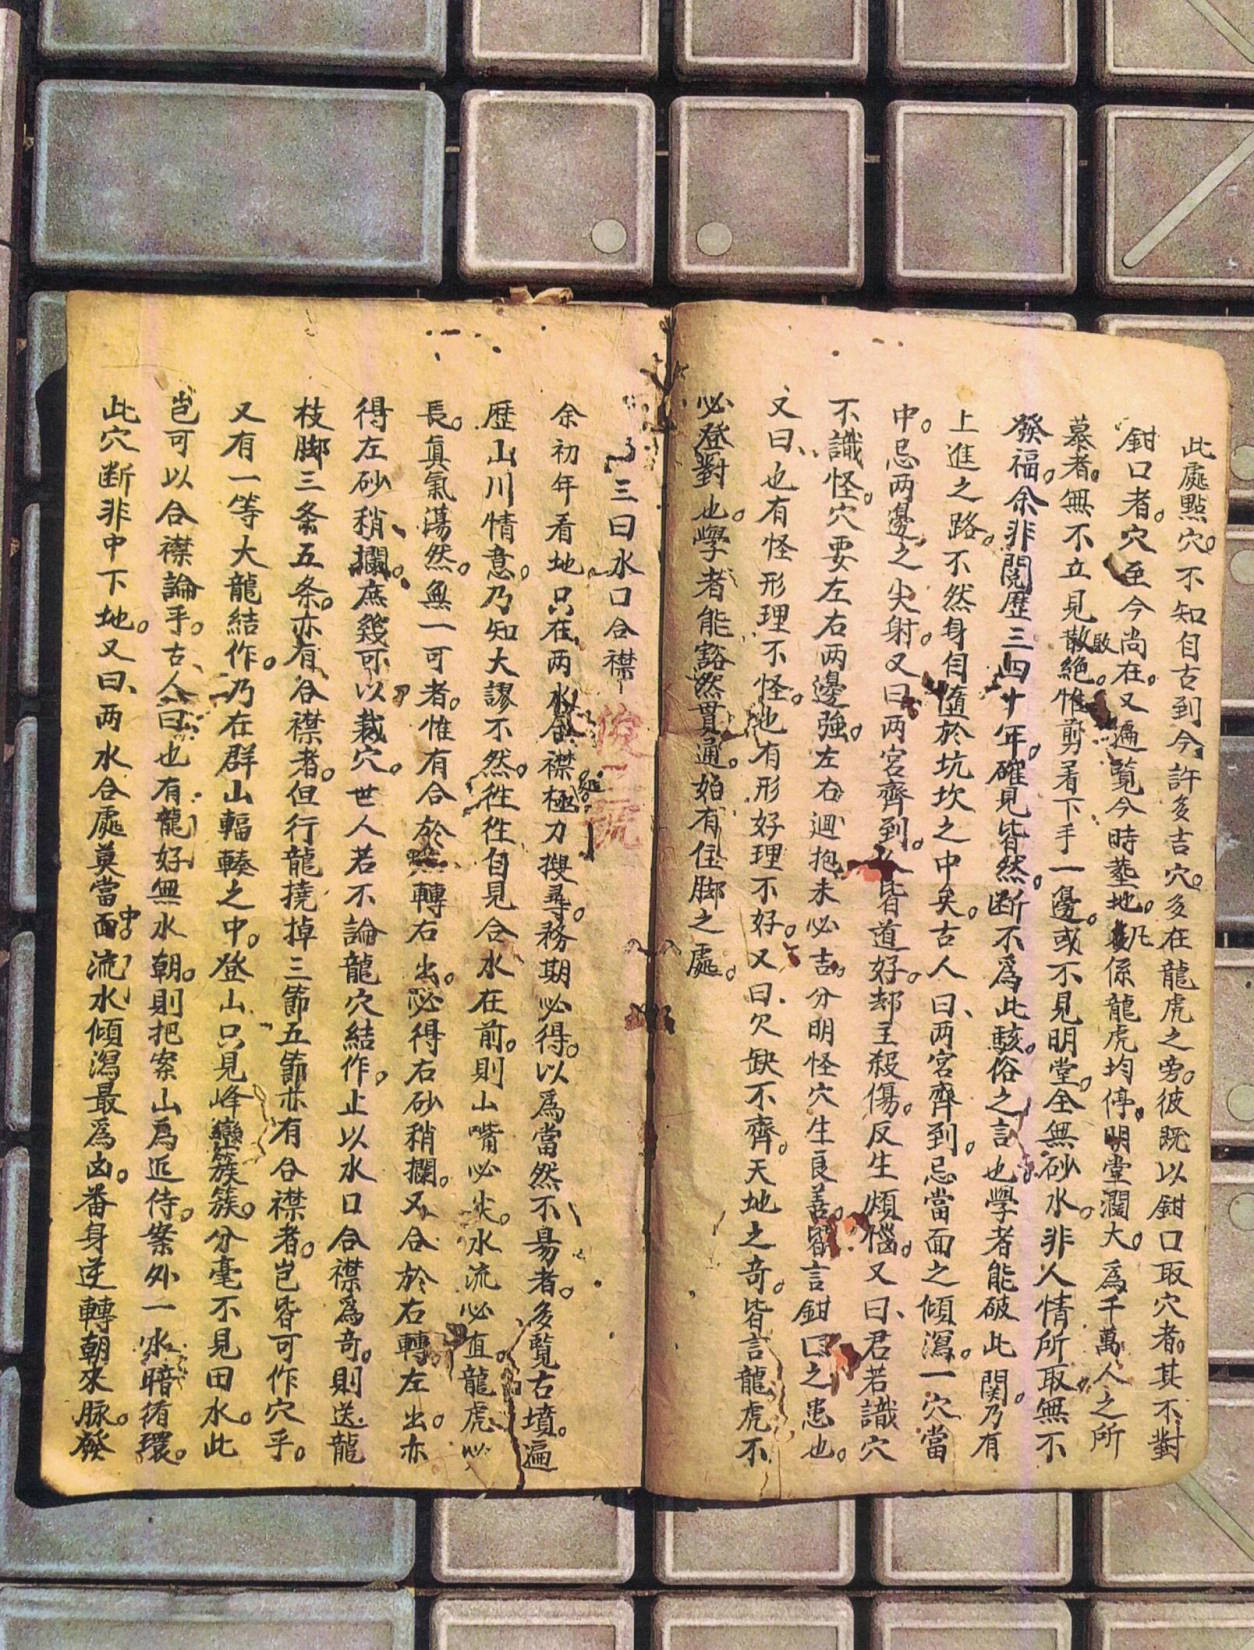 此處點穴。不知自古到今。許多吉穴。多在龍虎之旁。彼既以鉗口取穴者。其不對
鉗口者。穴至今尚在。又遍覧今時塟地。凡係龍虎均停。明堂濶大。為千萬人之所
慕者。無不立見敗絶。惟剪着下手一邊。或不見明堂。全無砂水。非人情所取無不
發福。余非閱歷三四十年。確見皆然。断不爲此駭俗之言也。學者能破此関。乃有
上進之路。不然身自墮於坑坎之中矣。古人曰、两宮齊到。忌當面之傾瀉。一穴當
中。忌两邊之尖射。又曰两宮齊到。人皆道好。却主殺傷。反生煩惱。又曰、君若識穴
不識怪。穴要左右两邊強。左右迴抱未必吉。分明怪穴生良善。皆言鉗口之患也。
又曰、也有怪形理不怪。也有形好理不好。又曰、欠缺不齊。天地之奇。皆言龍虎不
必登對也。學者能豁然貫通。始有住脚之處。
三曰水口合襟
俊一號
余初年看地。只在两水合襟極力搜尋。務期必得。以為當然不易者。多覧古墳。遍
歷山川情意。乃知大謬不然。徃徃自見合水在前。則山嘴必尖。水流必直。龍虎必
長。真氣蕩然。無一可者。惟有合於轉右出。必得右砂稍攔。又合於右轉左出。亦
得左砂稍攔。庶幾可以裁穴。世人若不論龍穴結作。止以水口合襟為奇。則送龍
枝脚三条五条。亦有合襟者。但行龍撓掉三節五節亦有合襟者。豈皆可作穴乎。
又有一等大龍結作。乃在群山輻輳之中。登山只見峰巒簇簇。分毫不見田水。此
豈可以合襟論乎。古人曰、也有龍好無水朝。則把案山為近侍。案外一水暗循環。
此穴断非中下地。又曰、两水合處莫當中。面流水傾瀉最為凶。番身逆轉朝來脉。發